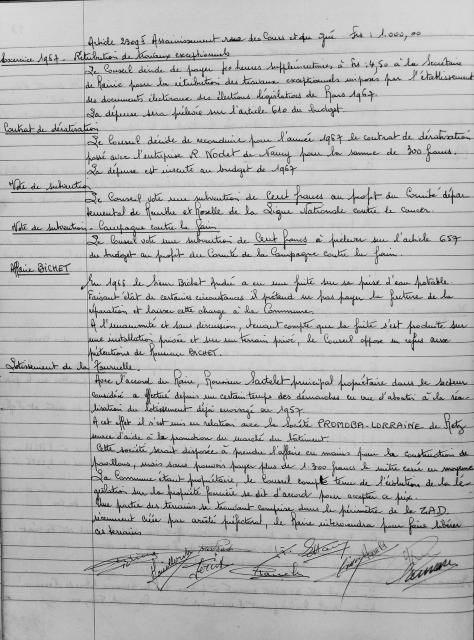 Article 230g5 Assainissement rue des Cours et que Gué Frs : 1.000,00
Exercice 1967 - Rétribution de travaux exceptionnels
Le Conseil décide de payer heures supplémentaires à Frs : 4,50 à la Secrétaire
de Mairie pour la rétribution des travaux exceptionnels imposés par l'établissement
des documents électoraux des élections législatives de Mars 1967.
La dépense sera prélevée sur l'article 610 du budget.
Contrat de dératisation
Le Conseil décide de reconduire pour l'année 1967 le contrat de dératisation
passé avec l'entreprise R. Nodet de Nancy pour la somme de 300 francs.
La dépense est inscrite au budget de 1967
Vote de subvention
Le Conseil vote une subvention de Cent francs au profit du Comité dépar-
temental de Meurthe et Moselle de la Ligue Nationale contre le cancer.
Vote de subvention - Campagne contre la faim
Le Conseil vote une subvention de Cent francs à prélever sur l'article 657
du budget au profit du Comité de la Campagne contre la faim.
Affaire BICHET
En 1966 le sieur Bichet André a eu une fuite sur sa prise d'eau potable.
Faisant état de certaines circonstances il prétend ne pas payer la facture de la
réparation et laisser cette charge à la Commune.
A l'unanimité et sans discussion, tenant compte que la fuite s'est produite sur
une installation privée et sur un terrain privé, le Conseil oppose un refus aux
prétentions de Monsieur BICHET.
Lotissement de la
Avec l'accord du Maire, Monsieur principal propriétaire dans le secteur
considéré a effectué depuis un certain temps des démarches en vue d'aboutir à la réa-
lisation du lotissement déjà envisagé en 1957.
A cet effet il s'est mis en relation avec la Société PROMOBA-LORRAINE de Metz
d'aide à la promotion du marché du bâtiment.
Cette société serait disposée à prendre l'affaire en mains pour la construction de
pavillons, mais sans pouvoir payer plus de 1.300 francs le mètre carré en moyenne
La Commune étant propriétaire, le Conseil compte tenu de l'évolution de la lé-
gislation sur la propriété foncière se dit d'accord pour accepter ce prix.
Une partie des terrains se trouvant comprise dans le périmètre de la ZAD.
récemment créée par arrêté préfectoral, le Maire interviendra pour faire libérer
ces terrains.